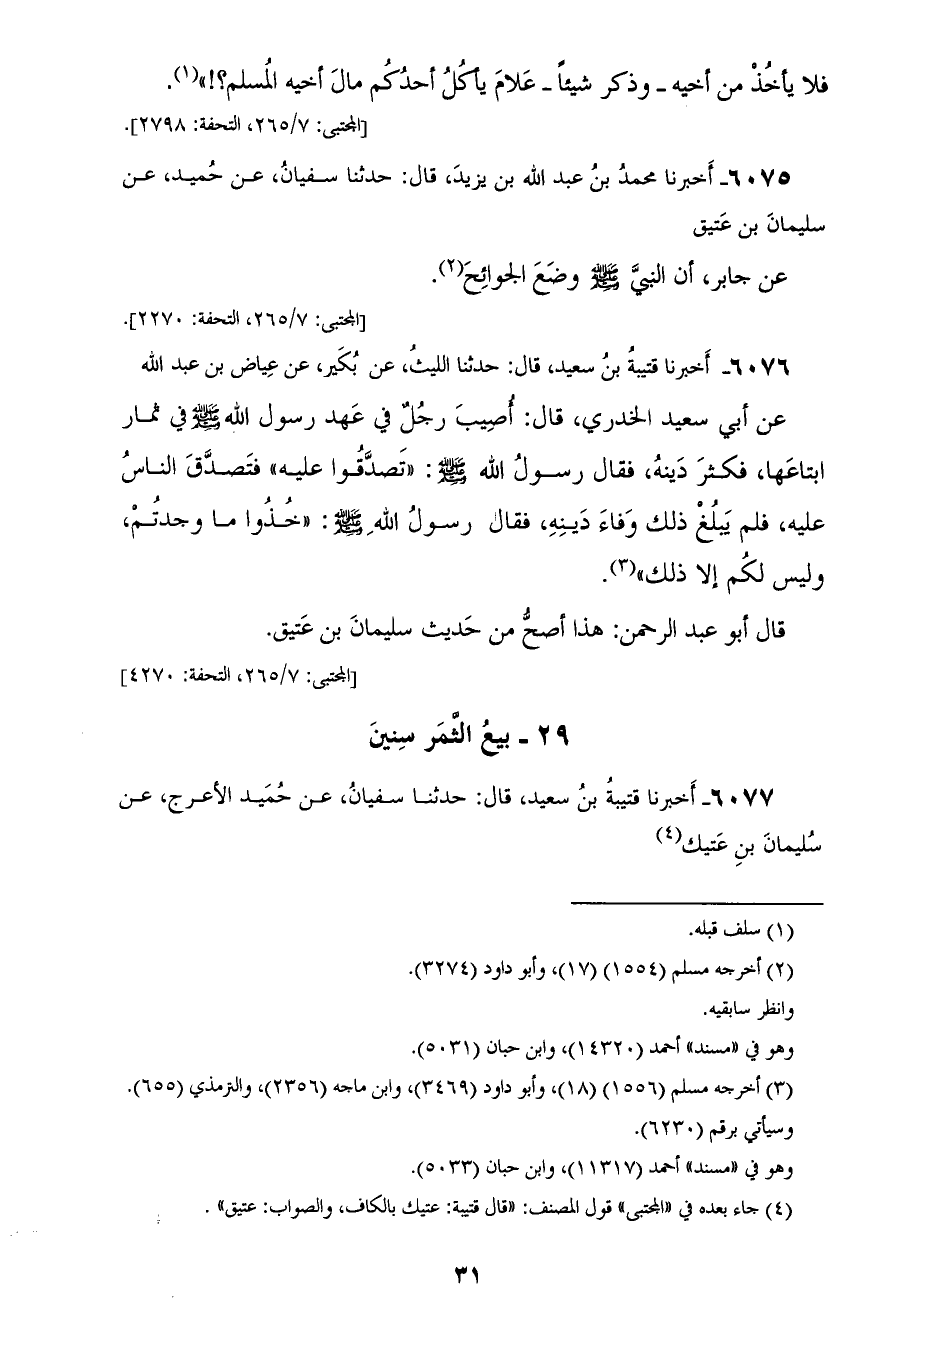 فلا يأخُذْ من أخيه ـ وذكر شيئاً ـ عَلامَ يأكُلُ أحدُكُم مالَ أخيه المُسلم؟!»(١).
[المجتبى: ٢٦٥/٧، التحفة: ٢٧٩٨].
٦٠٧٥ـ أَخبرنا محمدُ بنُ عبد الله بن يزيدَ، قال: حدثنا سفيانُ، عن حُميد، عن
سليمانَ بن عَتيق
عن جابر، أن النبيَّ ﷺ وضَعَ الجوائِحَ(٢).
[المجتبى: ٢٦٥/٧، التحفة: ٢٢٧٠].
٦٠٧٦ـ أَخبرنا قتيبةُ بنُ سعيد، قال: حدثنا الليثُ، عن بُكَير، عن عِياض بن عبد الله
عن أبي سعيد الخدري، قال: أُصِيبَ رجُلٌ في عَهد رسول الله ﷺ في ثمار
ابتاعَها، فكثرَ دَينهُ، فقال رسولُ الله ﷺ: «تَصدَّقُوا عليه» فتَصدَّقَ الناسُ
عليه، فلم يَبلُغْ ذلك وَفاءَ دَينِهِ، فقال رسولُ اللهِ ﷺ: «خُذُوا ما وجدتُمْ،
وليس لكُم إلا ذلك»(٣).
قال أبو عبد الرحمن: هذا أصحُّ من حَديث سليمانَ بن عَتيق.
[المجتبى: ٢٦٥/٧، التحفة: ٤٢٧٠]
٢٩ ـ بيعُ الثَّمَر سِنينَ
٦٠٧٧ـ أَخبرنا قتيبةُ بنُ سعيد، قال: حدثنا سفيانُ، عن حُمَيد الأعرج، عن
سُليمانَ بنِ عَتيك(٤)
(١) سلف قبله.
(٢) أخرجه مسلم (١٥٥٤) (١٧)، وأبو داود (٣٢٧٤).
وانظر سابقيه.
وهو في «مسند» أحمد (١٤٣٢٠)، وابن حبان (٥٠٣١).
(٣) أخرجه مسلم (١٥٥٦) (١٨)، وأبو داود (٣٤٦٩)، وابن ماجه (٢٣٥٦)، والترمذي (٦٥٥).
وسيأتي برقم (٦٢٣٠).
وهو في «مسند» أحمد (١١٣١٧)، وابن حبان (٥٠٣٣).
(٤) جاء بعده في «المجتبى» قول المصنف: «قال قتيبة: عتيك بالكاف، والصواب: عتيق» .
٣١